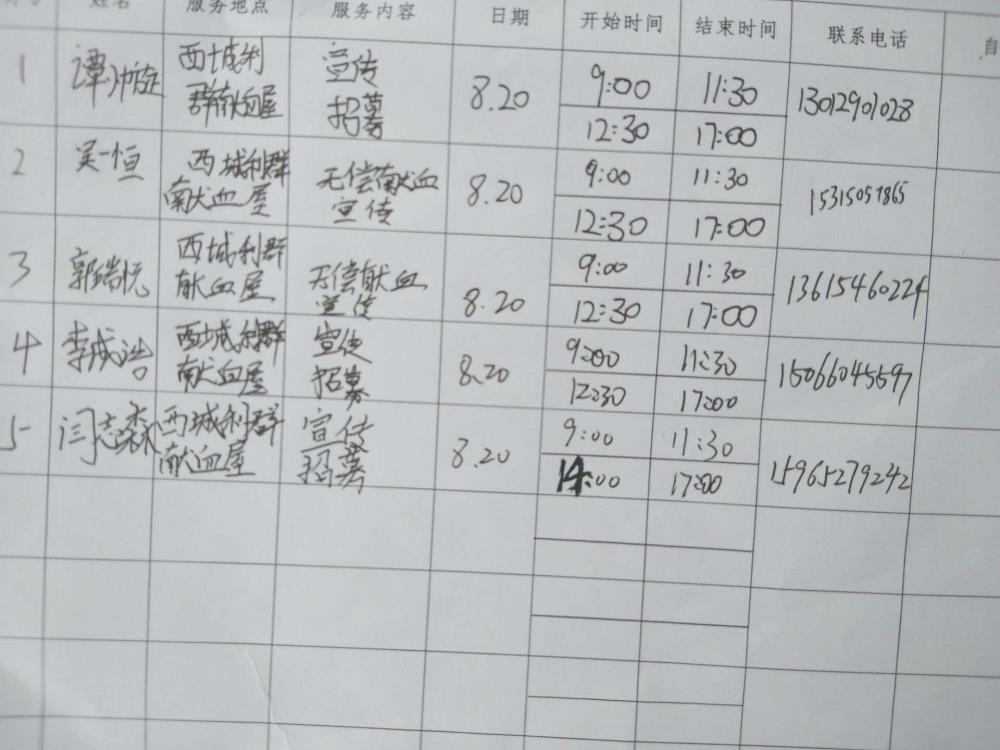 姓名 服务地点 服务内容 日期 开始时间 结束时间 联系电话 自
1 西城利 宣传 8.20 9:00 11:30 13012901028
群献血屋 招募 12:30 17:00
2 吴一恒 西城利群 无偿献血 8.20 9:00 11:30 15315057865
献血屋 宣传 12:30 17:00
3 郭瑞悦 西城利群 无偿献血 8.20 9:00 11:30 13615460224
献血屋 宣传 12:30 17:00
4 李成浩 西城利群 宣传 8.20 9:00 11:30 15066045597
献血屋 招募 12:30 17:00
5 闫志森 西城利群 宣传 8.20 9:00 11:30 15965279242
献血屋 招募 14:00 17:00